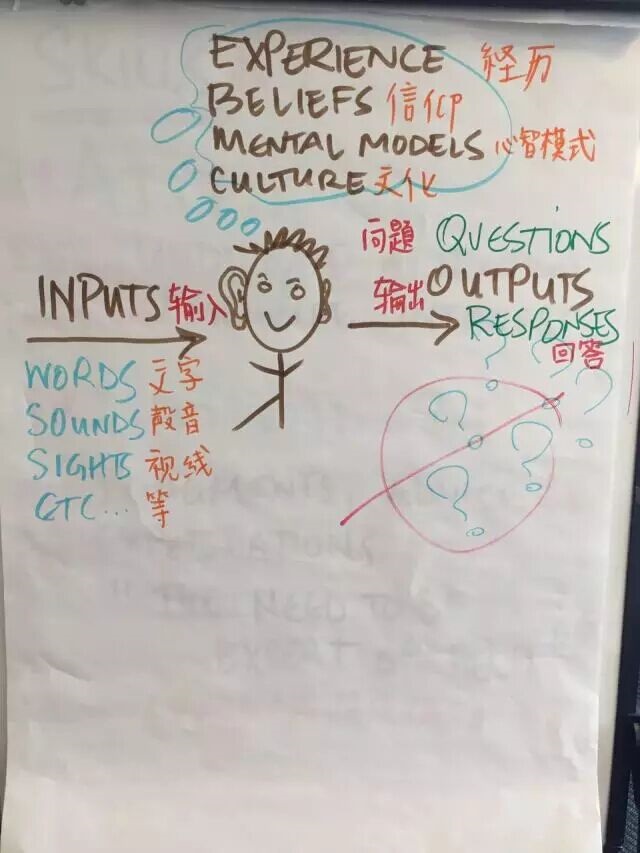 EXPERIENCE 経历
BELIEFS 信仰
MENTAL MODELS 心智模式
CULTURE 文化
问題 QUESTIONS
INPUTS 输入
输出 OUTPUTS
RESPONSES
回答
WORDS 文字
SOUNDS 殸音
SIGHTS 视线
ETC... 等
? ? ?
? ?
?